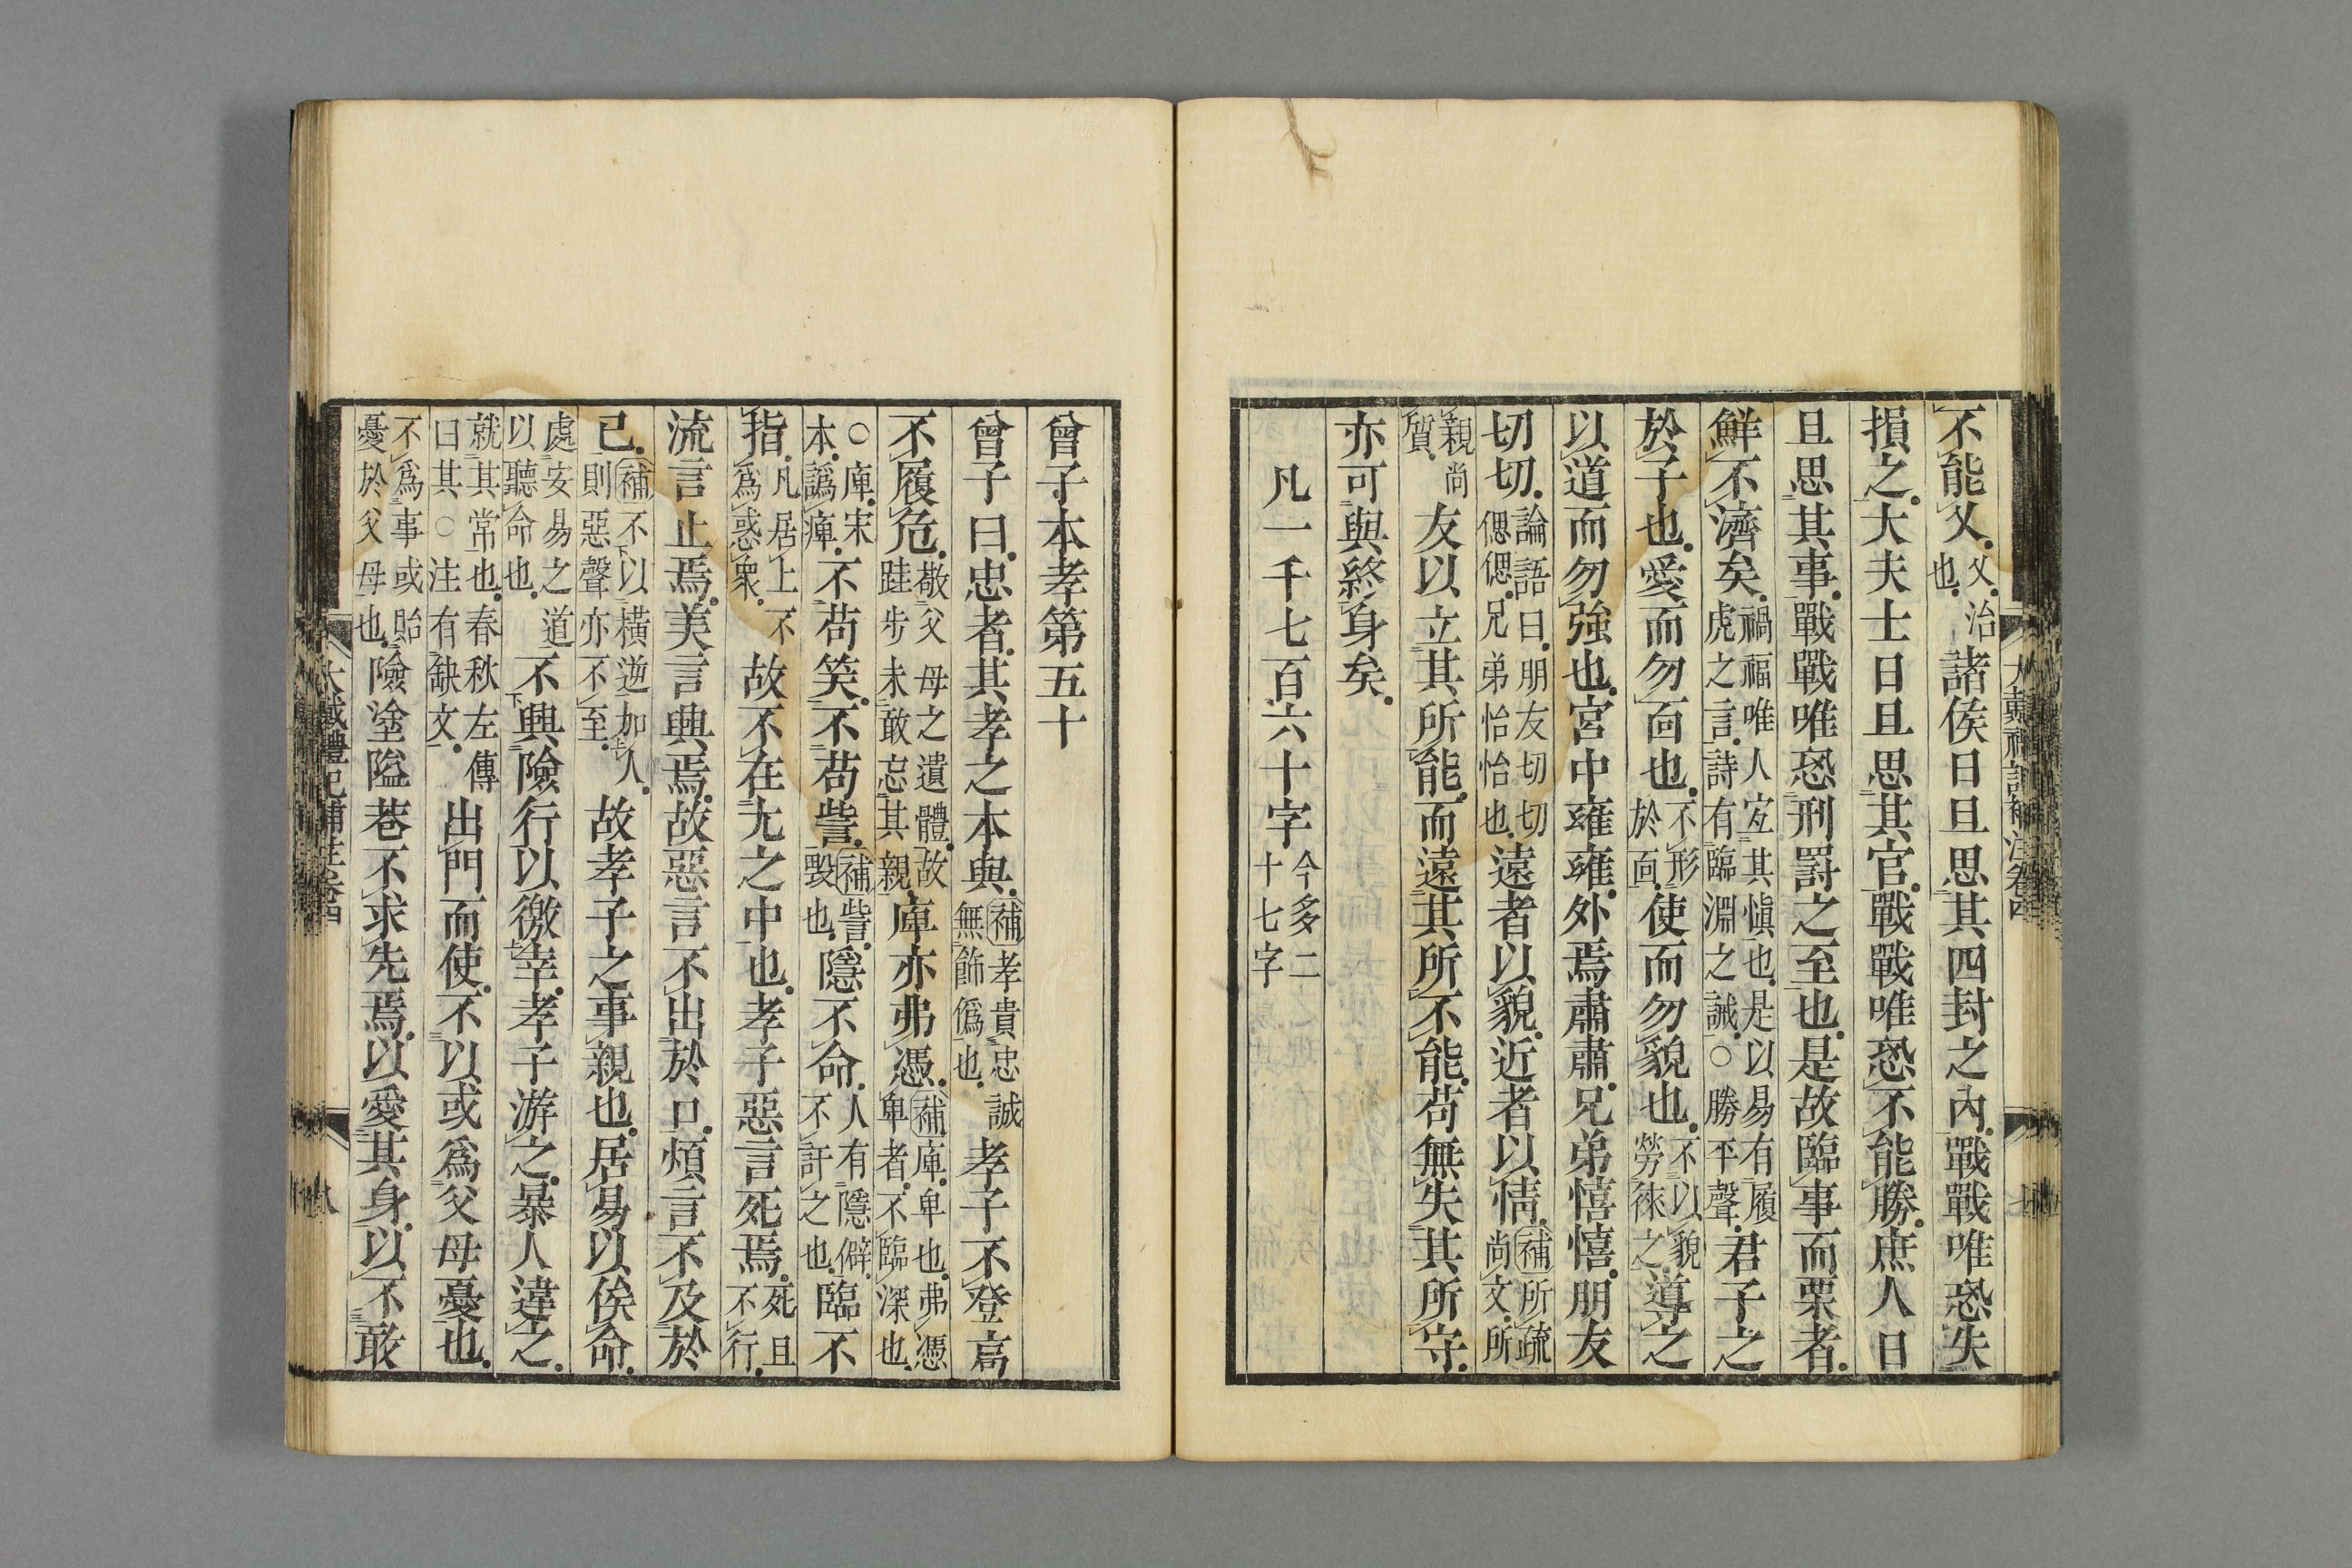 不能乂乂治也諸侯日旦思其四封之內戰戰唯恐失
損之大夫士日旦思其官戰戰唯恐不能勝庶人日
旦思其事戰戰唯恐刑罰之至也是故臨事而栗者
鮮不濟矣禍福唯人宜其愼也是以易有履虎之言詩有臨淵之誡○勝平聲君子之
於子也愛而勿面也不形於面使而勿貌也不以貌勞徠之導之
以道而勿強也宮中雍雍外焉肅肅兄弟憘憘朋友
切切論語曰朋友切切偲偲兄弟怡怡也遠者以貌近者以情補所疏尚文所
親尚質友以立其所能而遠其所不能苟無失其所守
亦可與終身矣
凡一千七百六十字今多二十七字
大戴禮記補注卷四
曾子本孝第五十
曾子曰忠者其孝之本與補孝貴忠誠無飾僞也孝子不登高
不履危敬父母之遺體故跬步未敢忘其親庳亦弗憑補庳卑也弗憑卑者不臨深也
○庳宋本譌痺不苟笑不苟訾補訾毀也隱不命人有隱僻不訐之也臨不
指凡居上不爲惑衆故不在尢之中也孝子惡言死焉死且不行
流言止焉美言興焉故惡言不出於口煩言不及於
己補不以橫逆加人則惡聲亦不至故孝子之事親也居易以俟命
處安易之道以聽命也不興險行以徼幸孝子游之暴人違之
就其常也春秋左傳曰其○注有缺文出門而使不以或爲父母憂也
不爲事或貽憂於父母也險塗隘巷不求先焉以愛其身以不敢
大戴禮記補注卷四
八